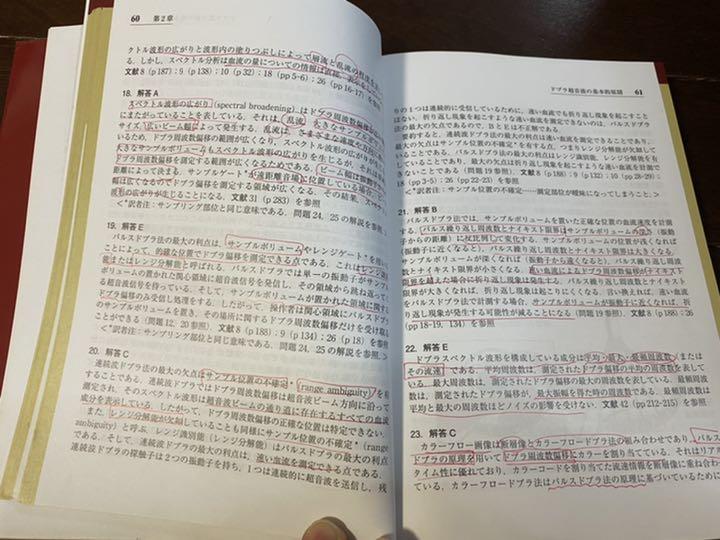 60 第2章
クトル波形の広がりと波形内の塗りつぶしによって層流と乱流の
る.しかし,スペクトル分析は血流の量についての情報は
文献8(p187);9(p138);10(p32);18(pp5-6);26(pp16-17)を参照
18. 解答A
スペクトル波形の広がり(spectral broadening)は
にまたがっていることを表している.それは,乱流,大きなサンプル
サイズ,広いビーム幅によって発生する.乱流は,さまざまな速度や方向
いるため,ドプラ周波数偏移の範囲が広くなり,スペクトル波形の広がり
大きなサンプルボリュームもスペクトル波形の広がりを生じるが,それは
ドプラ周波数偏移を測定する範囲が広くなるためである.ビーム幅は
よって決まる.サンプルゲートが遠距離音場に位置している場合,ビー
ム幅は広くなるのでドプラ偏移を測定する領域が広くなる.その結果,スペクトル
波形の広がりが生じることになる.文献31(p283)を参照
<*訳者注:サンプリング部位と同じ意味である.問題24,25の解説を参照.>
19. 解答E
パルスドプラ法の最大の利点は,サンプルボリュームやレンジゲート*を用い
ことによって,的確な位置でドプラ偏移を測定できる点である.これは
能またはレンジ分解能と呼ばれる.パルスドプラでは単一の振動子がサンプル
ボリュームの置かれた関心領域に超音波信号を発信し,その領域から跳ね返って
る超音波信号を待っている.そして,サンプルボリュームが置かれた領域に
ドプラ偏移のみ受信し処理をする.したがって,操作者は関心領域に
ボリュームを置き,その場所に関するドプラ周波数偏移だけを受け取る
とができる(問題12,20参照).文献8(p188);9(p134);26(p18)を参照
<*訳者注:サンプル部位と同じ意味である.問題24,25の解説を参照.>
20. 解答C
連続波ドプラ法の最大の欠点はサンプル位置の不確定*(range ambiguity)を有
連続波ドプラではドプラ周波数偏移が超音波ビーム方向に沿って
測定され,そのスペクトル波形は超音波ビームの通り道に存在するすべての血流
成分を表示している.したがって,ドプラ周波数偏移の正確な位置は特定できない.
また,レンジ分解能が欠如していることも同様にサンプル位置の不確定*(range
ambiguity)と呼ぶ.レンジ識別能(レンジ分解能)はパルスドプラの最大の利点
である.そして,連続波ドプラの最大の利点は,速い血流を測定できる点である.
連続波ドプラの探触子は2つの振動子を持ち,1つは連続的に超音波を送信し,残
ドプラ超音波の基本的原則 61
りの1つは連続的に受信しているために,速い血流でも折り返し現象を起こすこと
はない.折り返し現象を起こすような速い血流を測定できないのは,パルスドプラ
法の最大の欠点であるので,BとEは不正解である.
要約すると,連続波ドプラ法の最大の利点は速い血流を測定できることであり,
最大の欠点はサンプル位置の不確定*を有する点,つまりレンジ分解能が欠如して
いることであり,パルスドプラ法の最大の利点はレンジ識別能,レンジ分解能を有
していることであり,最大の欠点は折り返し現象を起こすような速い血流を計測で
きないことである(問題19参照).文献8(p188);9(p132);10(pp28-29)
18(pp3-5);26(pp22-23)を参照
<*訳者注:サンプル位置の不確定……測定部位が曖昧になってしまうこと.>
21. 解答B
パルスドプラ法では,サンプルボリュームを置いた正確な位置の血流速度を計測
する.パルス繰り返し周波数とナイキスト限界はサンプルボリュームの深さ(振動
子からの距離)に反比例して変化する.サンプルボリュームの位置が浅くなれば
(振動子に近くなると)パルス繰り返し周波数とナイキスト限界は大きくなる.
サンプルボリュームが深くなれば(振動子から遠くなると),パルス繰り返し周波
数とナイキスト限界が小さくなる.速い血流によるドプラ周波数偏移がナイキスト
限界を越えた場合に折り返し現象は発生する.パルス繰り返し周波数とナイキスト
限界が大きくなれば,折り返し現象は起こりにくくなる.言い換えれば,速い血流
をパルスドプラ法で計測する場合,サンプルボリュームが振動子に近くなれば,折
り返し現象が発生する可能性が減ることになる(問題19参照).文献8(p188);26
(pp18-19,134)を参照
22. 解答E
ドプラスペクトル波形を構成している成分は平均,最大,最頻周波数(または
その流速)である.平均周波数は,測定されたドプラ偏移の平均の周波数を表し
ている.最大周波数は,測定されたドプラ偏移の最大の周波数を表している.最頻周波
数は,ドプラ偏移が,最大振幅を得た時の周波数である.最頻周波数は
平均と最大の周波数ほどノイズの影響を受けない.文献42(pp212-215)を参照
23. 解答C
カラーフロー画像は断層像とカラーフロードプラ法の組み合わせであり,パルス
ドプラの原理を用いてドプラ周波数偏移にカラーを割り当てている.それはリアル
タイム性に優れており,カラーコードを割り当てた流速情報を断層像に重ね合わ
ている.カラーフロードプラ法はパルスドプラの原理に基づいているために